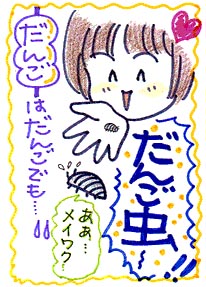 だんご
はだんごでも…!!
だんご虫!!
ああ…
メイワク…